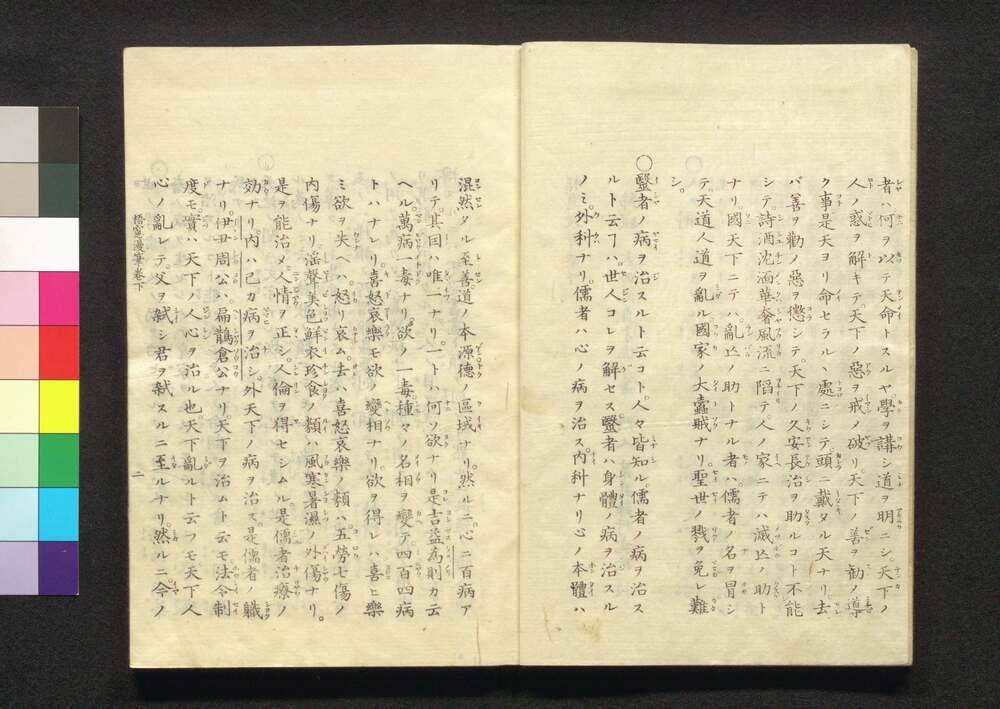 者ハ何ヲ以テ天命トスルヤ學ヲ講シ道ヲ明ニシ天下ノ
人ノ惑ヲ解キテ天下ノ惡ヲ戒メ破リ天下ノ善ヲ勧メ導
ク事是天ヨリ命セラルヽ處ニシテ頭ニ戴タル天ナリ去
バ善ヲ勸メ惡ヲ懲シテ天下ノ久安長治ヲ助ルコト不能
シテ詩酒沈湎華奢風流ニ陷テ人ノ家ニテハ滅亡ノ助ト
ナリ國天下ニテハ亂亡ノ助トナル者ハ儒者ノ名ヲ冒シ
テ天道人道ヲ亂ル國家ノ大蠧賊ナリ聖世ノ戮ヲ免レ難
シ。
〇毉者ノ病ヲ治スルト云コト人々皆知ル儒者ノ病ヲ治ス
ルト云ヿハ世人コレヲ解セス毉者ハ身體ノ病ヲ治スル
ノミ外科ナリ儒者ハ心ノ病ヲ治ス内科ナリ心ノ本體ハ
混然タル至善道ノ本源德ノ區域ナリ然ルニ心ニ百病ア
リテ其因ハ唯一ナリ一トハ何ソ欲ナリ是吉益為則カ云
ヘル萬病一毒ナリ欲ノ一毒種々ノ名相ヲ變テ四百四病
トハナレリ喜怒哀樂モ欲ノ變相ナリ欲ヲ得レハ喜ヒ樂
ミ欲ヲ失ヘハ怒リ哀ム去ハ喜怒哀樂ノ類ハ五勞七傷ノ
内傷ナリ滛聲美色鮮衣珍食ノ類ハ風寒暑濕ノ外傷ナリ。
是ヲ能治メ人情ヲ正シ人倫ヲ得セシムル是儒者治療ノ
効ナリ内ハ己カ病ヲ治シ外天下ノ病ヲ治ス是儒者ノ職
ナリ伊尹周公ハ扁鵲倉公ナリ天下ヲ治ムト云モ法令制
度モ實ハ天下ノ人心ヲ治ル也天下亂ルト云フモ天下人
心ノ亂レテ父ヲ弑シ君ヲ弑スルニ至ルナリ然ルニ今ノ
漫筆卷下
二